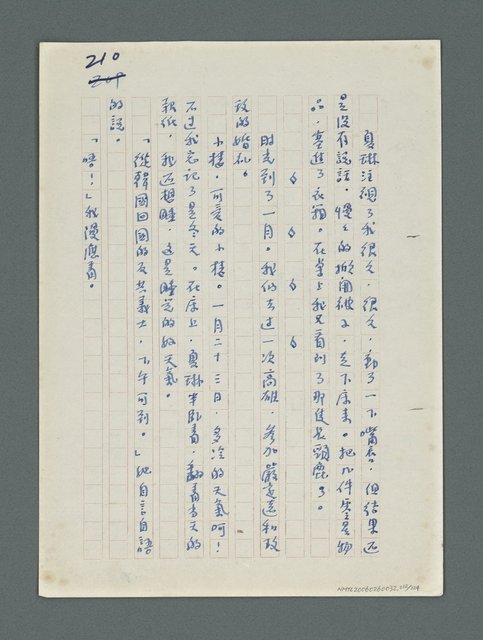 210
209
夏琳注視了我很久，很久，動了一下嘴唇，但結果还
是沒有說話。慢々的掀開被子，走下床来。把几件零星物
品，塞進了衣箱。在桌上我又看到了那隻長頸鹿了。
時光到了一月。我們去过一次高雄，參加嚴志遠和政
玫的婚礼。
小樓，可爱的小樓。一月二十三日，多冷的天氣呵！
不过我忘記了是冬天。在床上，夏琳半卧着，翻着当天的
報纸，我还想睡，这是睡觉的好天氣。
「從韓國回國的反共義士，下午可到。」她自言自語
的說。
「唔！」我漫應着。
NMTL20060260032